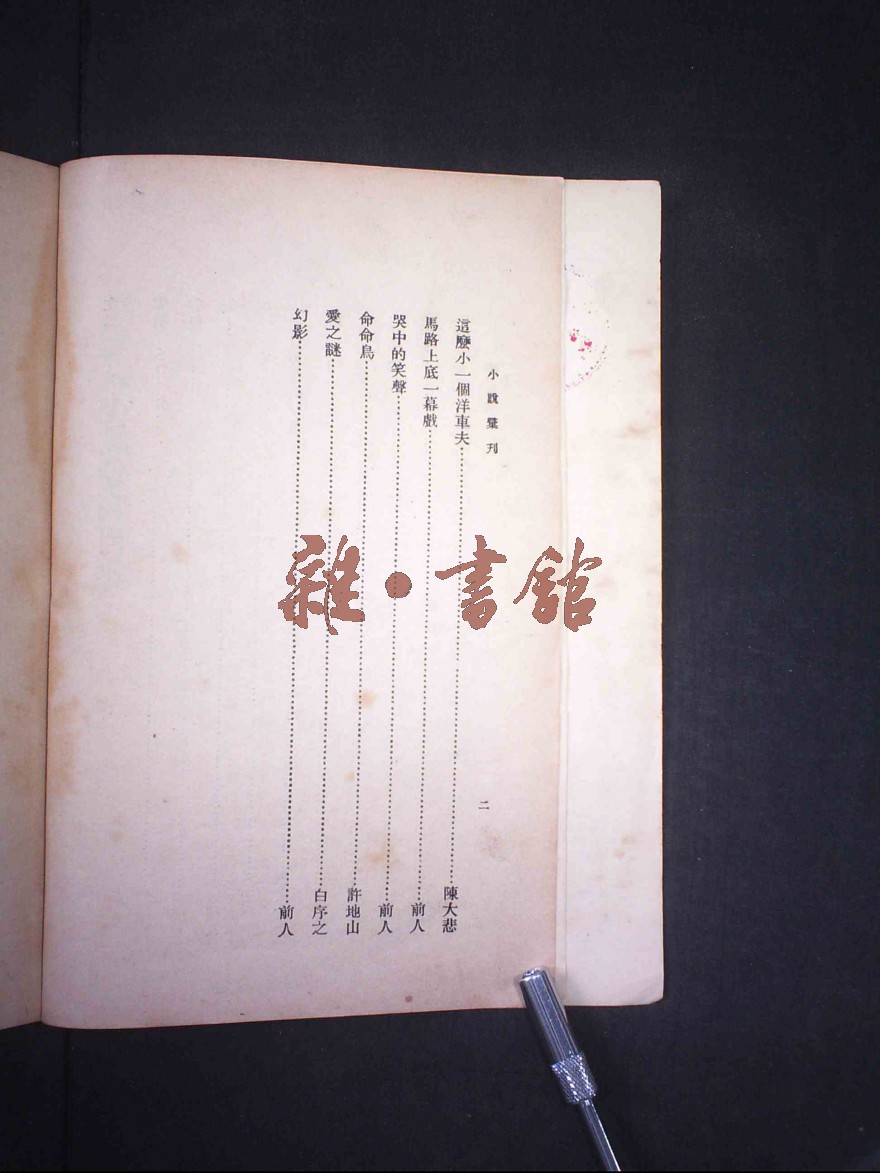 小說彙刊
二
這麼小一個洋車夫……陳大悲
馬路上底一幕戲……前人
哭中的笑聲……前人
命命鳥……許地山
愛之謎……白序之
幻影……前人
雜·書館